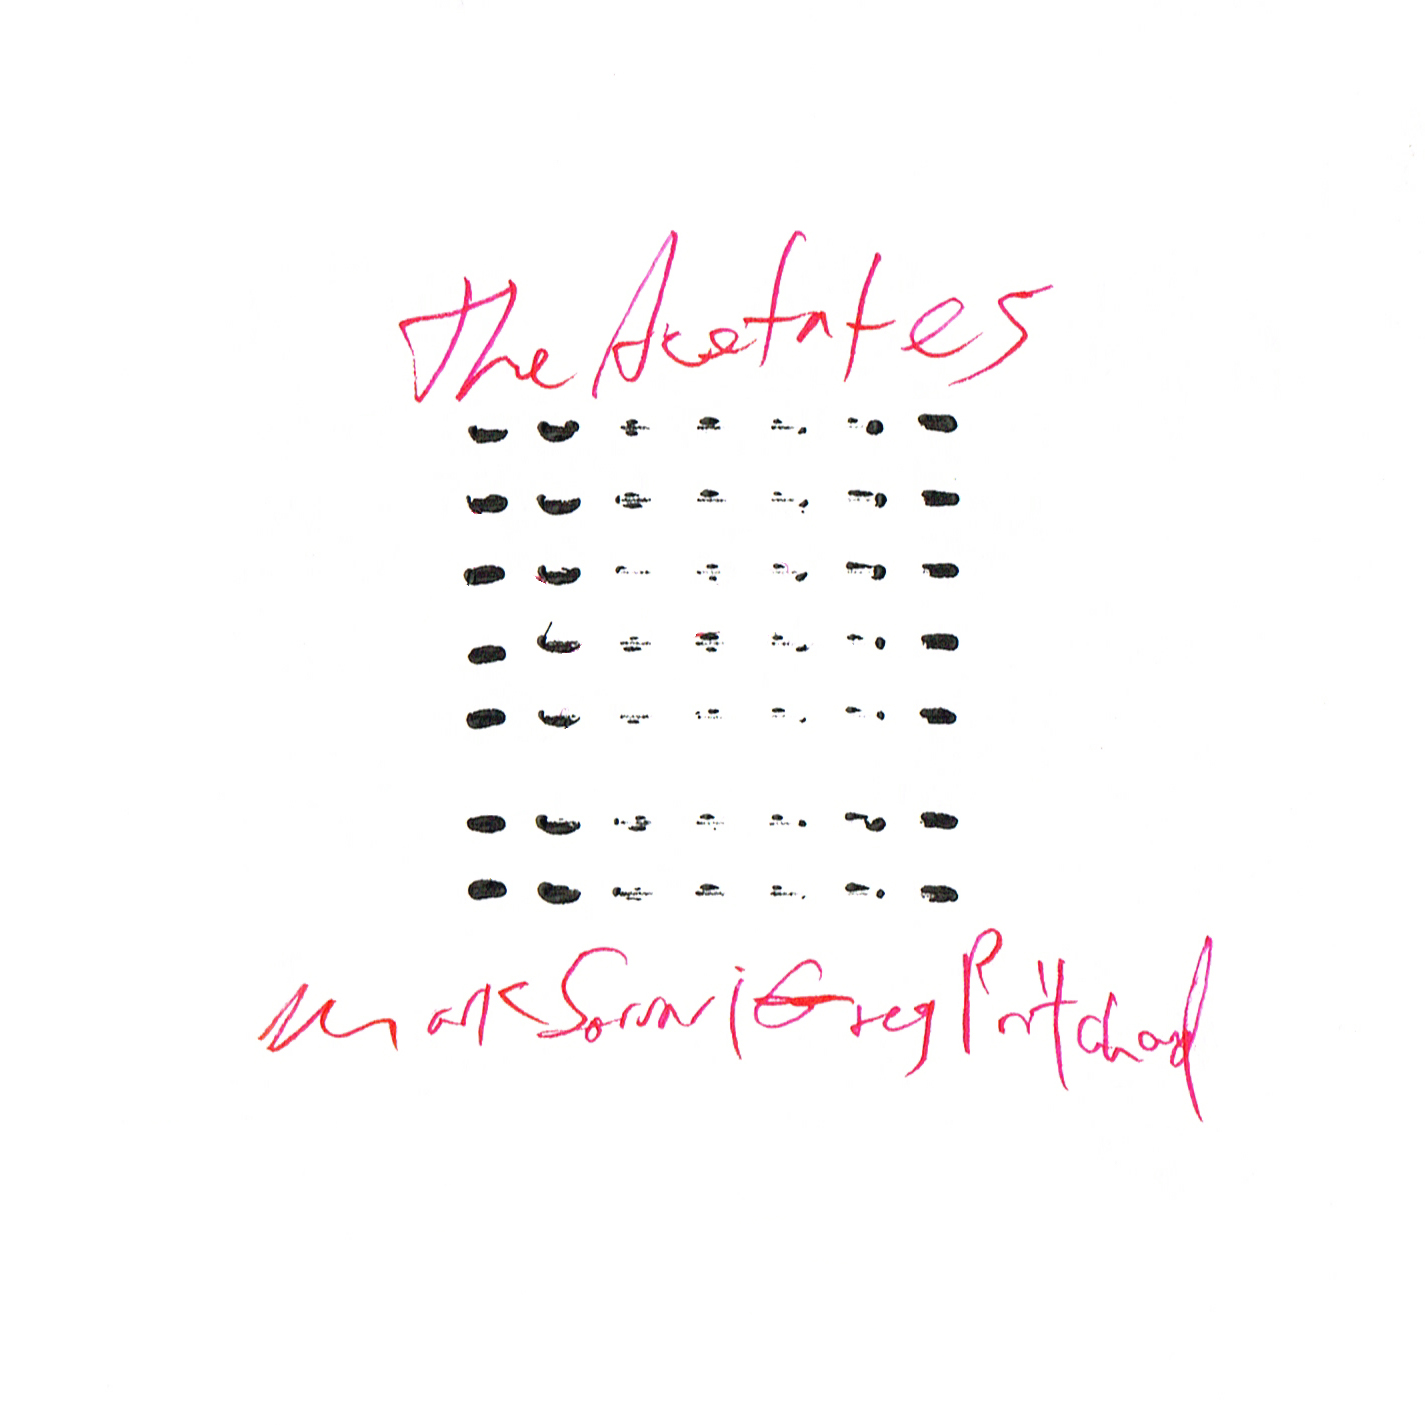 The Acetates
Mark Greg Pritchard